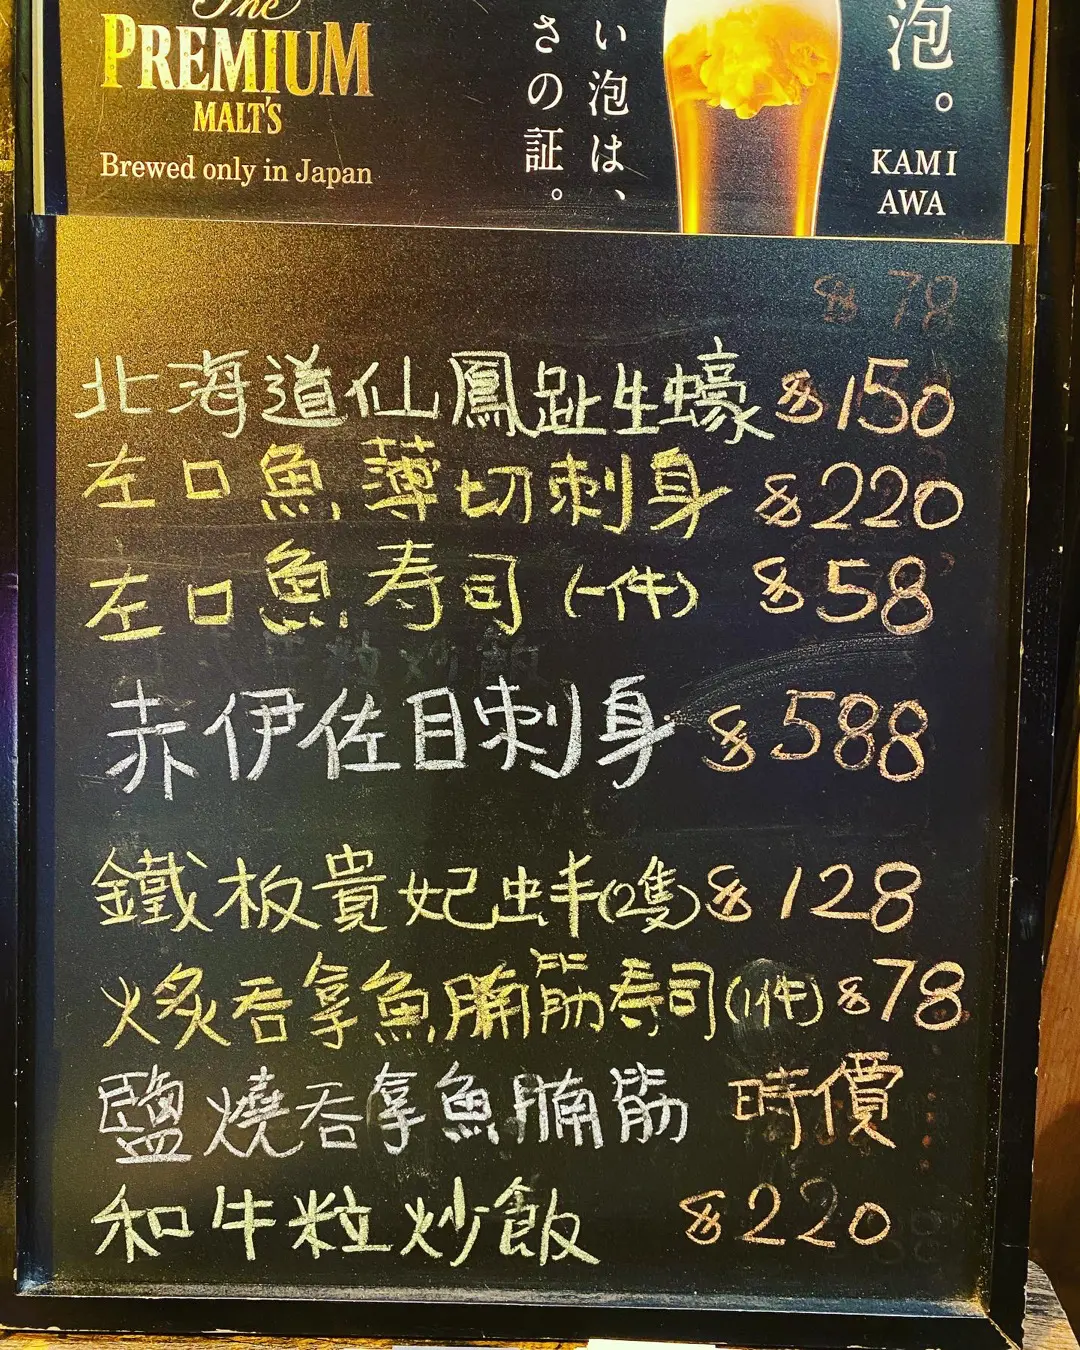 The
PREMIUM
MALT'S
Brewed only in Japan
い泡は、
さの証。
泡。
KAMI
AWA
$78
北海道仙鳳趾生蠔 $150
左口魚薄切刺身 $220
左口魚寿司(一件) $58
赤伊佐目刺身 $588
鐵板貴妃蚌(2隻) $128
火炙吞拿魚腩筋寿司(1件) $78
鹽燒吞拿魚腩筋 時價
和牛粒炒飯 $220